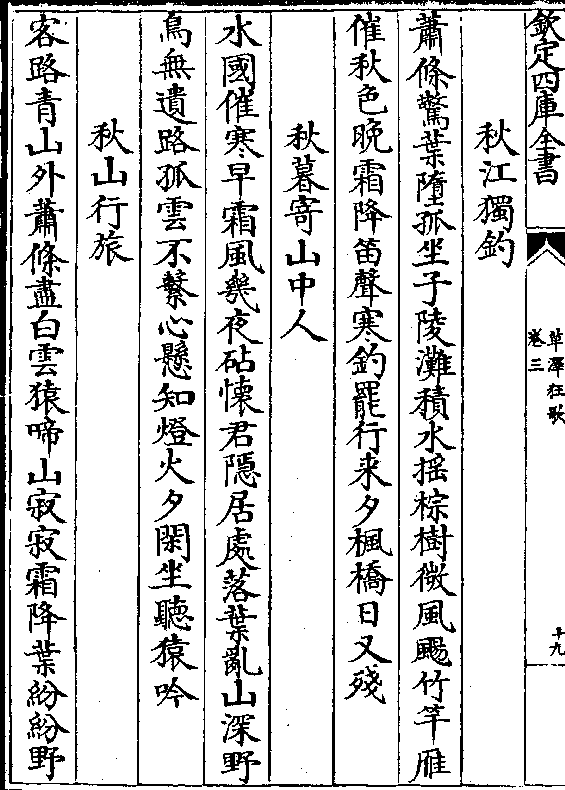 欽定四庫全書
草澤狂歌
卷三
十九
秋江獨釣
蕭條驚葉墮孤坐子陵灘積水揺棕樹微風颺竹竿雁
催秋色晚霜降笛聲寒釣罷行来夕楓橋日又殘
秋暮寄山中人
水國催寒早霜風幾夜砧懷君隱居處落葉亂山深野
鳥無遺路孤雲不繫心懸知燈火夕閑坐聽猿吟
秋山行旅
客路青山外蕭條盡白雲猿啼山寂寂霜降葉紛紛野